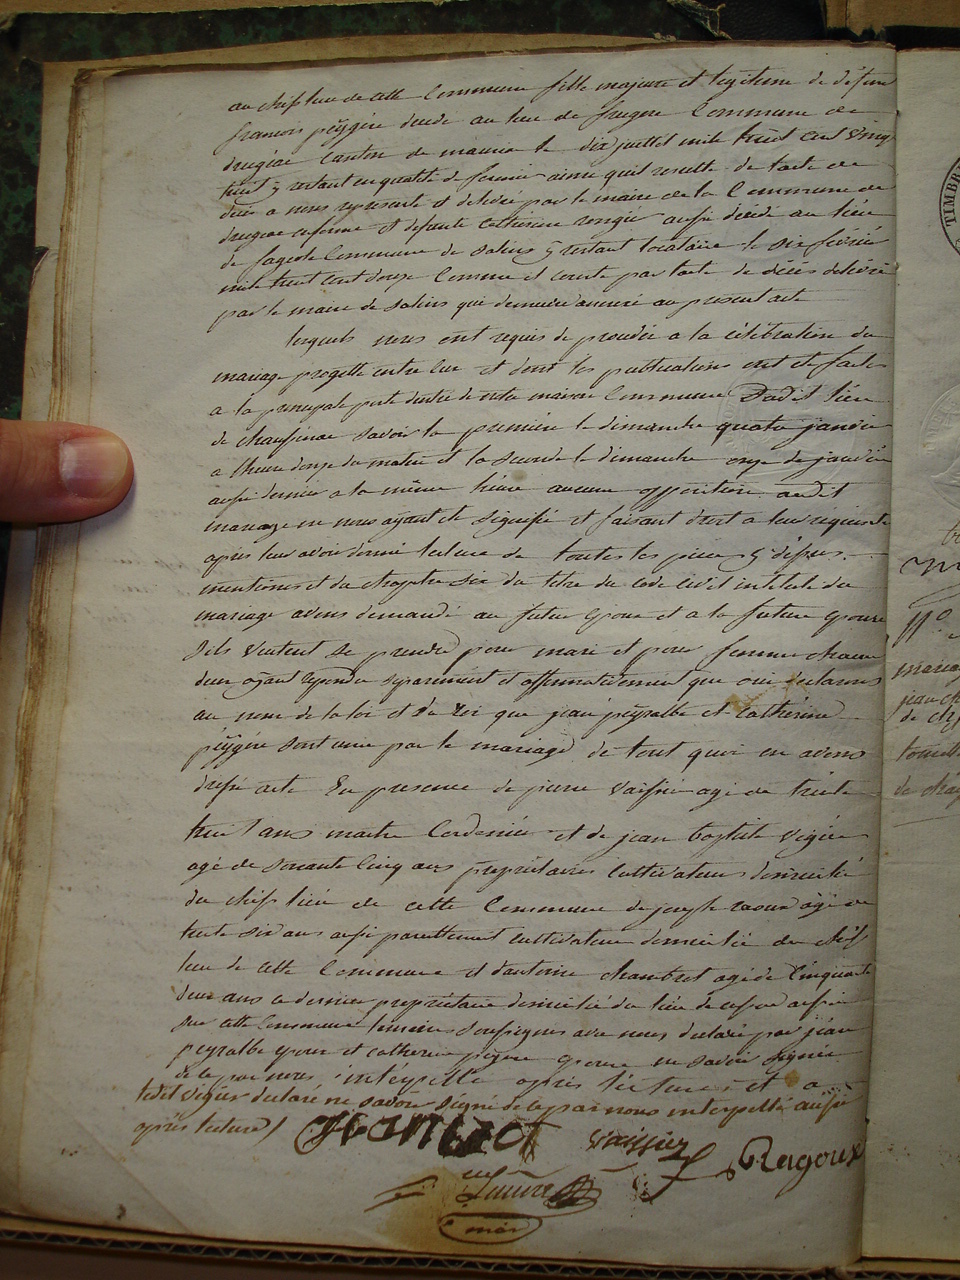 au chef lieu de cette Commune fille majeure et legitime de défunt
francois peÿgère decedé au lieu de Commune de
drugeac canton de mauriac le dix juillet mile huit cent vingt
huit ÿ restant en qualité de fermier ainsi quil resulte de lacte de
deces a nous representé et delivré par le maire de la Commune de
drugeac et defunte Catherine aussi décédé au lieu
de Commune de Salins ÿ restant locataire le six février
mile huit cent douze Comme il conste par lacte de décès delivré
par le maire de Salins qui demeure annexé au present acte
lesquels nous ont requis de proceder a la célébration du
mariage progetté entre eux et dont les publications ont eté faites
a la principale porte dentré de notre maison Commune Dudit lieu
de chaussenac savoir la première le dimanche quatre janvier
a lheure donze du matin et la seconde le dimanche onze de janvier
aussi dernier a la même heure aucune opposition audit
mariage ne nous aÿant eté signifié et faisant droit a leur requisite
après leur avoir donné lecture de toutes les pieces cÿ dessus
mentionés et du chapitre six du titre du code civil intitulé du
mariage avons demandé au futur epoux et a la future epouse
sils veulent se prendre pour mari et pour femme chacun
deux aÿant repondu separement et affirmativement que oui declarons
au nom de la loi et du roi que jean peÿralbe et Catherine
peÿgère sont unis par le mariage de tout quoi en avons
dressé acte En presence de pierre vaissier agé de trente
huit ans maitre Cordonnier et de jean baptiste vigier
agé de soixante Cinq ans propriétaires Cultivateurs domicilié
du chef lieu de cette Commune de joseph raoux agé de
trente six ans aussi pareillement cultivateur domicilié du chef
lieu de cette Commune et dantoine chambret agé de Cinquante
deux ans ce dernier propriétaire domicilié du lieu de aussi
sur cette Commune temoins soussignés avec nous declaré par jean
peyralbe epoux et catherine pégère epouse ne savoir signer
de ce par nous intérpellé après lecture et a
ledit vigier declaré ne savoir signé de ce par nous interpellé aussi
après lecture
vaissier
Ragoux
maire
TIMBRE
N°
mariage
jean
de